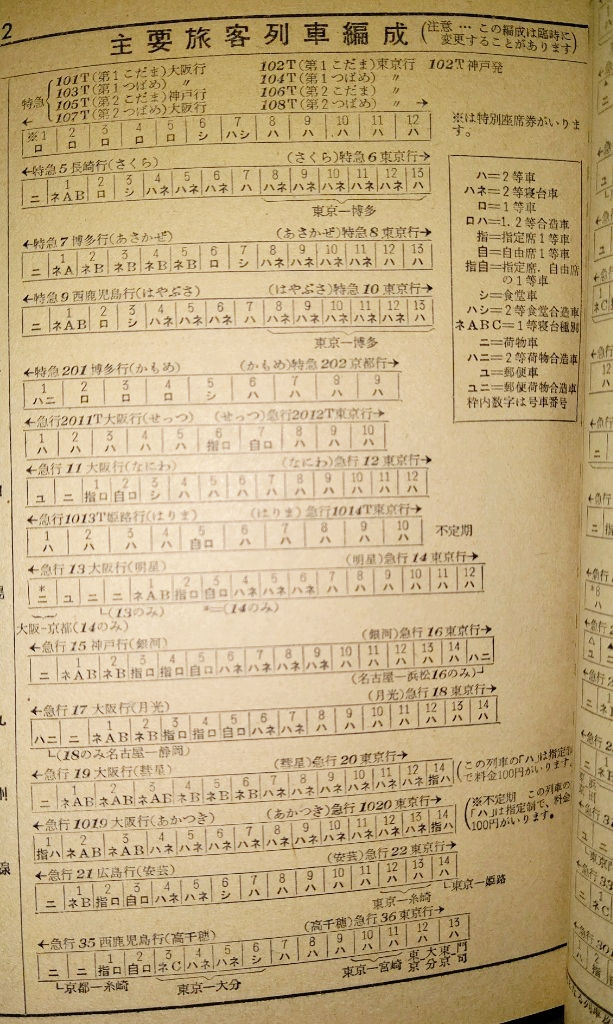 2
主要旅客列車編成
(注意 … この編成は臨時に変更することがあります)
特急
101T(第1こだま)大阪行
103T(第1つばめ) 〃
105T(第2こだま)神戸行
107T(第2つばめ)大阪行
102T(第1こだま)東京行 102T神戸発
104T(第1つばめ) 〃
106T(第2こだま) 〃
108T(第2つばめ) 〃 →
※1 2 3 4 5 6 7 8 9 10 11 12
ロ ロ ロ ロ ロ シ ハシ ハ ハ ハ ハ ハ
※は特別座席券がいります。
←特急5長崎行(さくら) (さくら)特急6東京行→
1 2 3 4 5 6 7 8 9 10 11 12 13
ニ ネAB ロ シ ハネ ハネ ハネ ハ ハネ ハネ ハネ ハネ ハネ ハ
東京―博多
←特急7博多行(あさかぜ) (あさかぜ)特急8東京行→
1 2 3 4 5 6 7 8 9 10 11 12 13
ニ ネA ネB ネB ネB ロ シ ハネ ハネ ハネ ハネ ハネ ハ ハ
←特急9西鹿児島行(はやぶさ) (はやぶさ)特急10東京行→
1 2 3 4 5 6 7 8 9 10 11 12 13
ニ ネAB ロ シ ハネ ハネ ハネ ハ ハネ ハネ ハネ ハネ ハネ ハ
東京―博多
←特急201博多行(かもめ) (かもめ)特急202京都行→
1 2 3 4 5 6 7 8 9
ハニ ロ ロ ロ シ ハ ハ ハ ハ
←急行2011T大阪行(せっつ) (せっつ)急行2012T東京行→
1 2 3 4 5 6 7 8 9 10
ハ ハ ハ ハ ハ 指ロ 自ロ ハ ハ ハ
←急行11大阪行(なにわ) (なにわ)急行12東京行→
1 2 3 4 5 6 7 8 9 10 11 12
ユ ニ 指ロ 自ロ シ ハ ハ ハ ハ ハ ハ ハ ハ ハ
←急行1013T姫路行(はりま) (はりま)急行1014T東京行→
1 2 3 4 5 6 7 8 9 10
ハ ハ ハ ハ 自ロ ハ ハ ハ ハ ハ
不定期
←急行13大阪行(明星) (明星)急行14東京行→
* 1 2 3 4 5 6 7 8 9 10 11 12
ニ ユ ニ ニ ネAB 指ロ 自ロ ハネ ハネ ハネ ハ ハ ハ ハ ハ ハ
└(13のみ) *=(14のみ)
大阪―京都(14のみ)
←急行15神戸行(銀河) (銀河)急行16東京行→
1 2 3 4 5 6 7 8 9 10 11 12 13 14
ニ ネAB ネB 指ロ 指ロ 自ロ ハネ ハネ ハネ ハ ハ ハ ハ ハ ハ ハニ
(名古屋―浜松16のみ)┘
←急行17大阪行(月光) (月光)急行18東京行→
1 2 3 4 5 6 7 8 9 10 11 12 13 14
ハニ ニ ネAB ネB 指ロ 指ロ 自ロ ハネ ハネ ハ ハ ハ ハ ハ ハ ハ
└(18のみ名古屋―静岡)
←急行19大阪行(彗星) (彗星)急行20東京行→
1 2 3 4 5 6 7 8 9 10 11 12 13 14
ニ ネAB ネAB ネAB ネB ネB ネB ハネ ハネ ハネ ハネ ハネ ハネ ハネ 指ハ
(この列車の「ハ」は指定制で料金100円がいります。
←急行1019大阪行(あかつき) (あかつき)急行1020東京行→
1 2 3 4 5 6 7 8 9 10 11 12 13 14
指ハ ネAB ネAB ハネ ハネ ハネ ハネ ハネ ハネ ハネ ハネ ハネ ハネ 指ハ
(※不定期 この列車の「ハ」は指定制で、料金100円がいります。
←急行21広島行(安芸) (安芸)急行22東京行→
1 2 3 4 5 6 7 8 9 10 11 12 13 14
ニ ネB 指ロ 自ロ ハネ ハネ シ ハ ハ ハ ハ ハ ハ ハ ハ
東京―糸崎
└東京―姫路
←急行35西鹿児島行(高千穂) (高千穂)急行36東京行→
1 2 3 4 5 6 7 8 9 10 11 12 13
ニ ニ 指ロ 自ロ ネC ハネ ハネ シ ハ ハ ハ ハ ハ ハ ハ
└京都―糸崎
東京―大分
東京―宮崎
東京 大分 東京 門司
ハ=2等車
ハネ=2等寝台車
ロ=1等車
ロハ=1.2等合造車
指=指定席1等車
自=自由席1等車
指自=指定席.自由席の1等車
シ=食堂車
ハシ=2等食堂合造車
ネABC=1等寝台種別
ニ=荷物車
ハニ=2等荷物合造車
ユ=郵便車
ユニ=郵便荷物合造車
枠内数字は号車番号